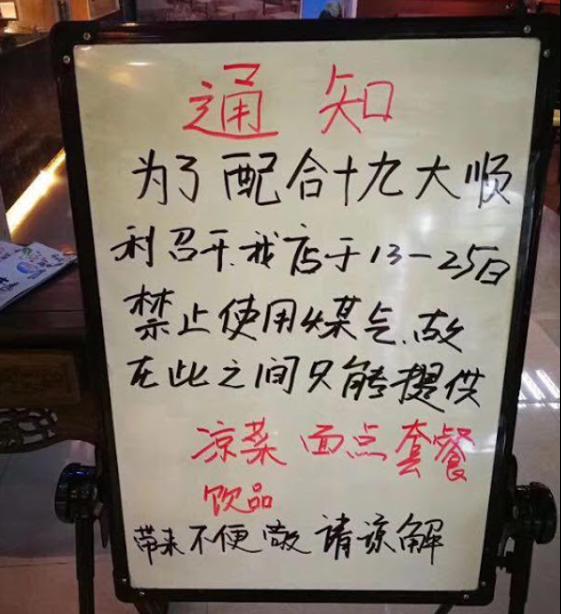 通知
为了配合十九大顺
利召开,我店于13-25日
禁止使用煤气,故
在此之间只能提供
凉菜 面点 套餐
饮品
带来不便 敬请谅解